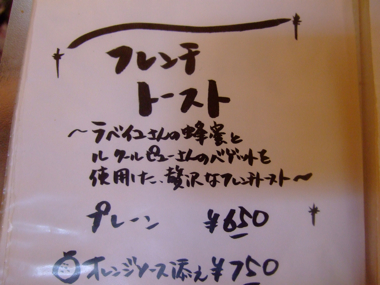 フレンチ
トースト
〜ラベイユさんの蜂蜜と
ル クールピューさんのバゲットを
使用した、贅沢なフレンチトースト〜
プレーン ¥650
オレンジソース添え ¥750